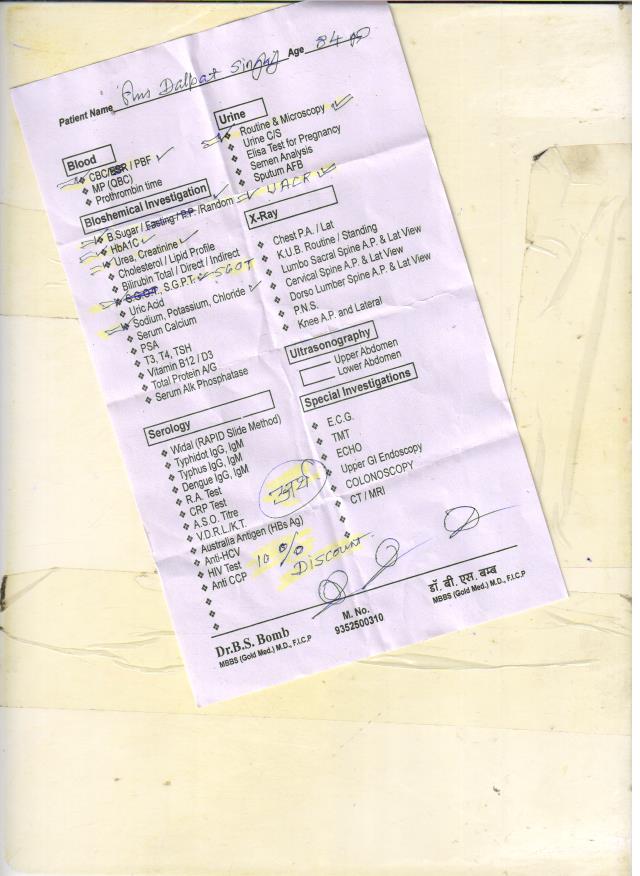 Patient Name Dalpat Singh Age 84
Blood
CBC/ESR / PBF ✓
MP (QBC)
Prothrombin time
Bioshemical Investigation
B.Sugar / Fasting / P.P. /Random ✓
HbA1C ✓
Urea, Creatinine ✓
Cholesterol / Lipid Profile
Bilirubin Total / Direct / Indirect
S.G.O.T., S.G.P.T. ✓ SGOT
Uric Acid
Sodium, Potassium, Chloride ✓
Serum Calcium
PSA
T3, T4, TSH
Vitamin B12 / D3
Total Protein A/G
Serum Alk Phosphatase
Serology
Widal (RAPID Slide Method)
Typhidot IgG, IgM
Typhus IgG, IgM
Dengue IgG, IgM
R.A. Test
CRP Test
A.S.O. Titre
V.D.R.L./K.T.
Australia Antigen (HBs Ag)
Anti-HCV
HIV Test
Anti CCP
Urine
Routine & Microscopy ✓
Urine C/S
Elisa Test for Pregnancy
Semen Analysis
Sputum AFB
UACR ✓
X-Ray
Chest P.A. / Lat
K.U.B. Routine / Standing
Lumbo Sacral Spine A.P. & Lat View
Cervical Spine A.P. & Lat View
Dorso Lumber Spine A.P. & Lat View
P.N.S.
Knee A.P. and Lateral
Ultrasonography
Upper Abdomen
Lower Abdomen
Special Investigations
E.C.G.
TMT
ECHO
Upper GI Endoscopy
COLONOSCOPY
CT / MRI
10 %
Discount
Dr.B.S. Bomb
MBBS (Gold Med.) M.D., F.I.C.P
M. No.
9352500310
डॉ. बी. एस. बम्ब
MBBS (Gold Med.) M.D., F.I.C.P